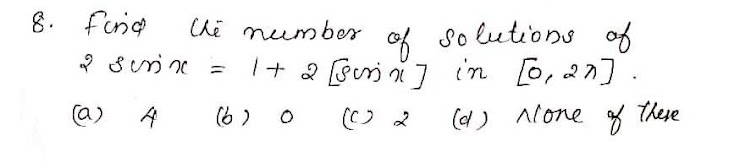 8. Find the number of solutions of
2 sin x = 1 + 2 [sin x] in [0, 2π].
(a) 4 (b) 0 (c) 2 (d) None of these